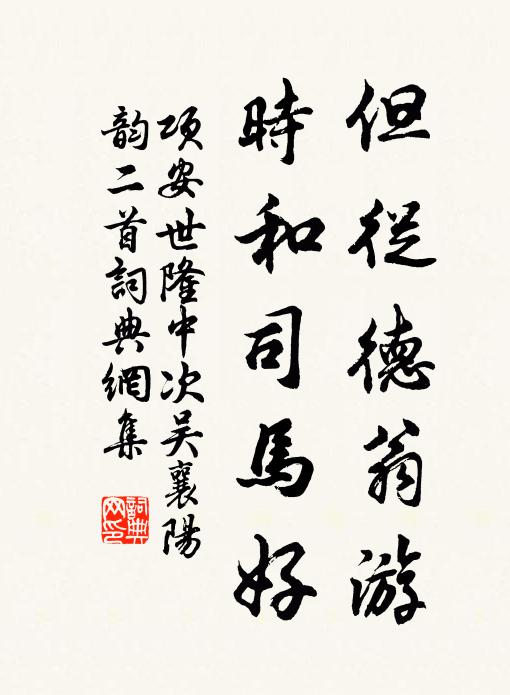 但從德翁游
時和司馬好
項安世隆中次吴襄陽
韵二首詞典網集
詞典
网印